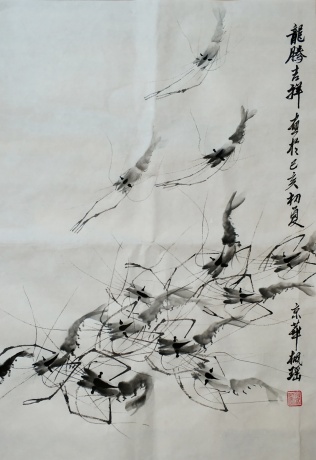 龍騰吉祥 画於己亥初夏
京華楓瑶